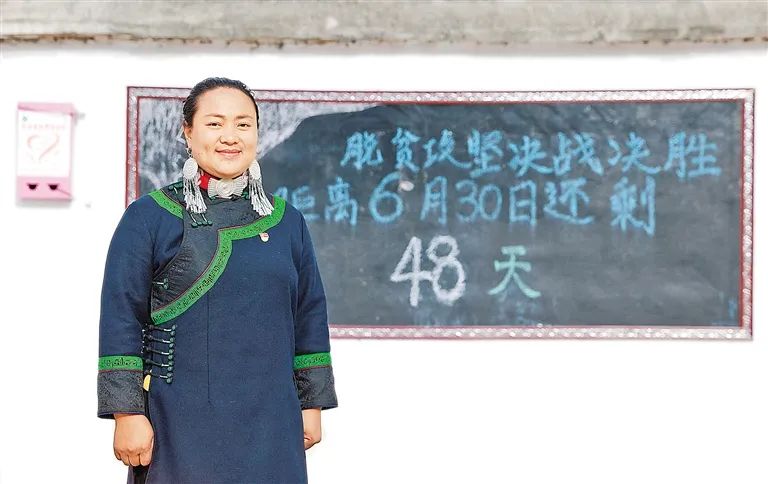 脱贫攻坚决战决胜
距离6月30日还剩
48天